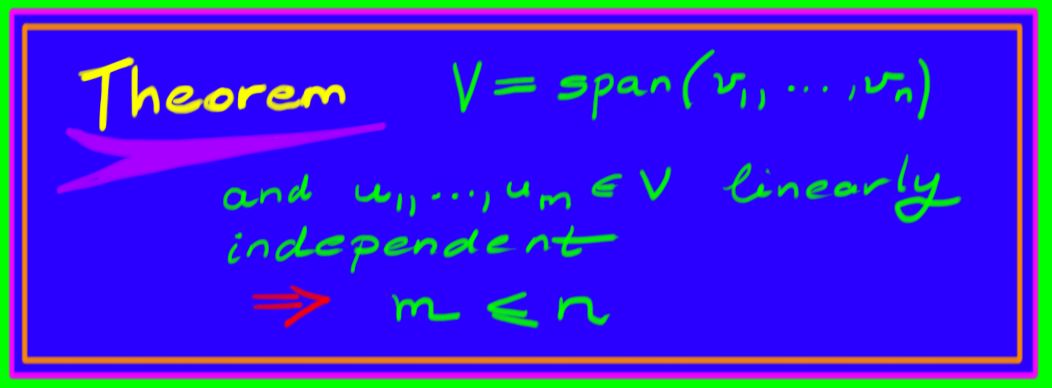 Theorem V = span(v₁, ..., vₙ)
and u₁, ..., uₘ ∈ V linearly
independent
⇒ m ≤ n